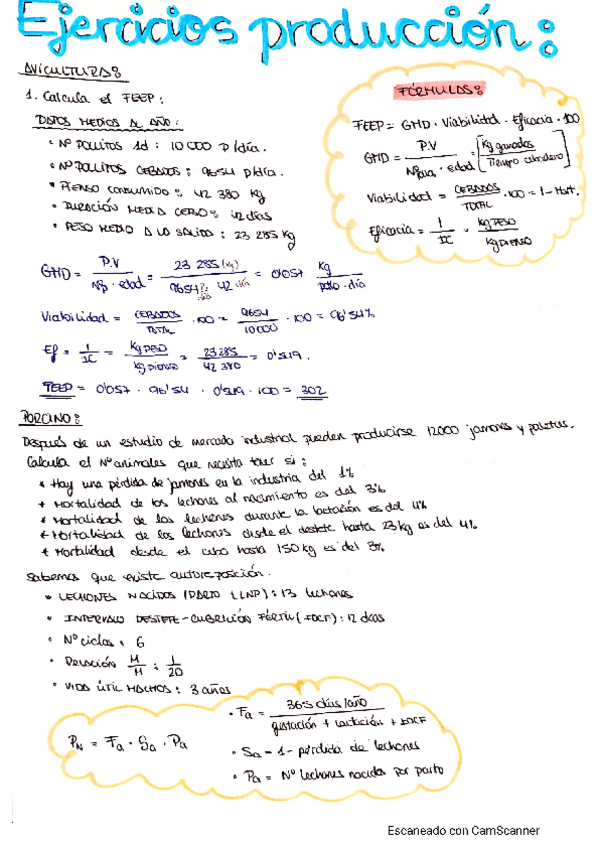 Ejercicios producción:
AVICULTURA:
1. Calcula el FEEP:
DATOS MEDIOS AL AÑO:
• Nº POLLITOS 1d: 10 000 p/día.
• Nº POLLITOS CEBADOS: 9654 p/día.
• PIENSO CONSUMIDO: 42 380 kg
• DURACIÓN MEDIA CEBO: 42 días
• PESO MEDIO A LA SALIDA: 23 285 kg
FÓRMULAS:
FEEP = GMD · Viabilidad · Eficacia · 100
GMD = P.V / · edad = [kg ganados / Tiempo]
Viabilidad = CEBADOS / TOTAL · 100 = 1 - Mort.
Eficacia = 1 / IC = kg PESO / kg PIENSO
GMD = P.V / Np · edad = 23 285 (kg) / 9654 p/día · 42 día = 0'057 kg / pollo · día
Viabilidad = CEBADOS / TOTAL · 100 = 9654 / 10000 · 100 = 96'54%
Ef = 1 / IC = kg PESO / kg pienso = 23 285 / 42 380 = 0'549.
FEEP = 0'057 · 96'54 · 0'549 · 100 = 302
PORCINO:
Después de un estudio de mercado industrial pueden producirse 12000 jamones y paletas.
Calcula el Nº animales que necesita tener si:
* Hay una pérdida de jamones en la industria del 1%
* Mortalidad de los lechones al nacimiento es del 3%
* Mortalidad de los lechones durante la lactación es del 4%
* Mortalidad de los lechones desde el destete hasta 23 kg es del 4%
* Mortalidad desde el cebo hasta 150 kg es del 3%
Sabemos que existe autoreposición.
• LECHONES NACIDOS / PARTO (LNP): 13 lechones
• INTERVALO DESTETE-CUBRICIÓN FÉRTIL (IDCF): 12 días
• Nº ciclos: 6
• Relación M / H : 1 / 20
• VIDA ÚTIL MACHOS: 3 años
PN = Fa · Sa · Pa
• Fa = 365 días/año / gestación + lactación + IDCF
• Sa = 1 - pérdida de lechones
• Pa = Nº lechones nacidos por parto
Escaneado con CamScanner